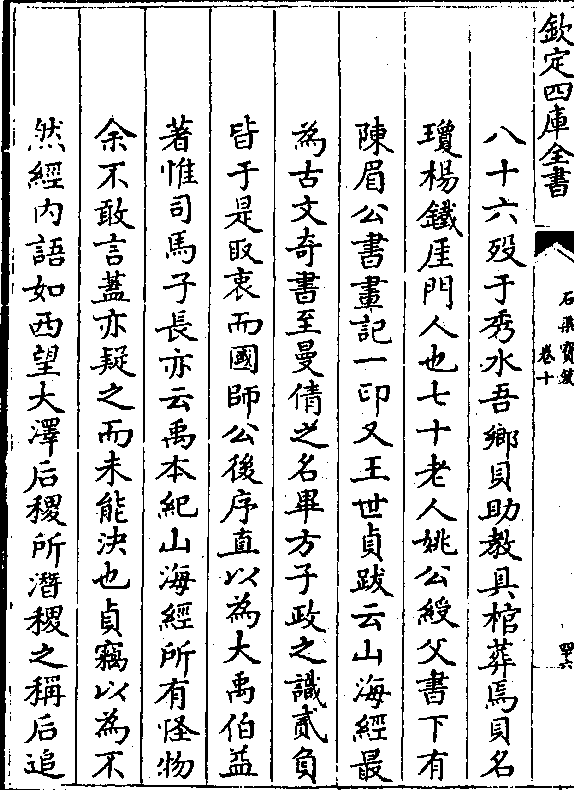 欽定四庫全書
石渠寶笈
卷十
四六
八十六殁于秀水吾鄉貝助教具棺葬焉貝名
瓊楊鐵厓門人也七十老人姚公綬父書下有
陳眉公書畫記一印又王世貞跋云山海經最
為古文竒書至曼倩之名畢方子政之識貳負
皆于是取衷而國師公後序直以為大禹伯益
著惟司馬子長亦云禹本紀山海經所有怪物
余不敢言葢亦疑之而未能決也貞竊以為不
然經内語如西望大澤后稷所潛稷之稱后追